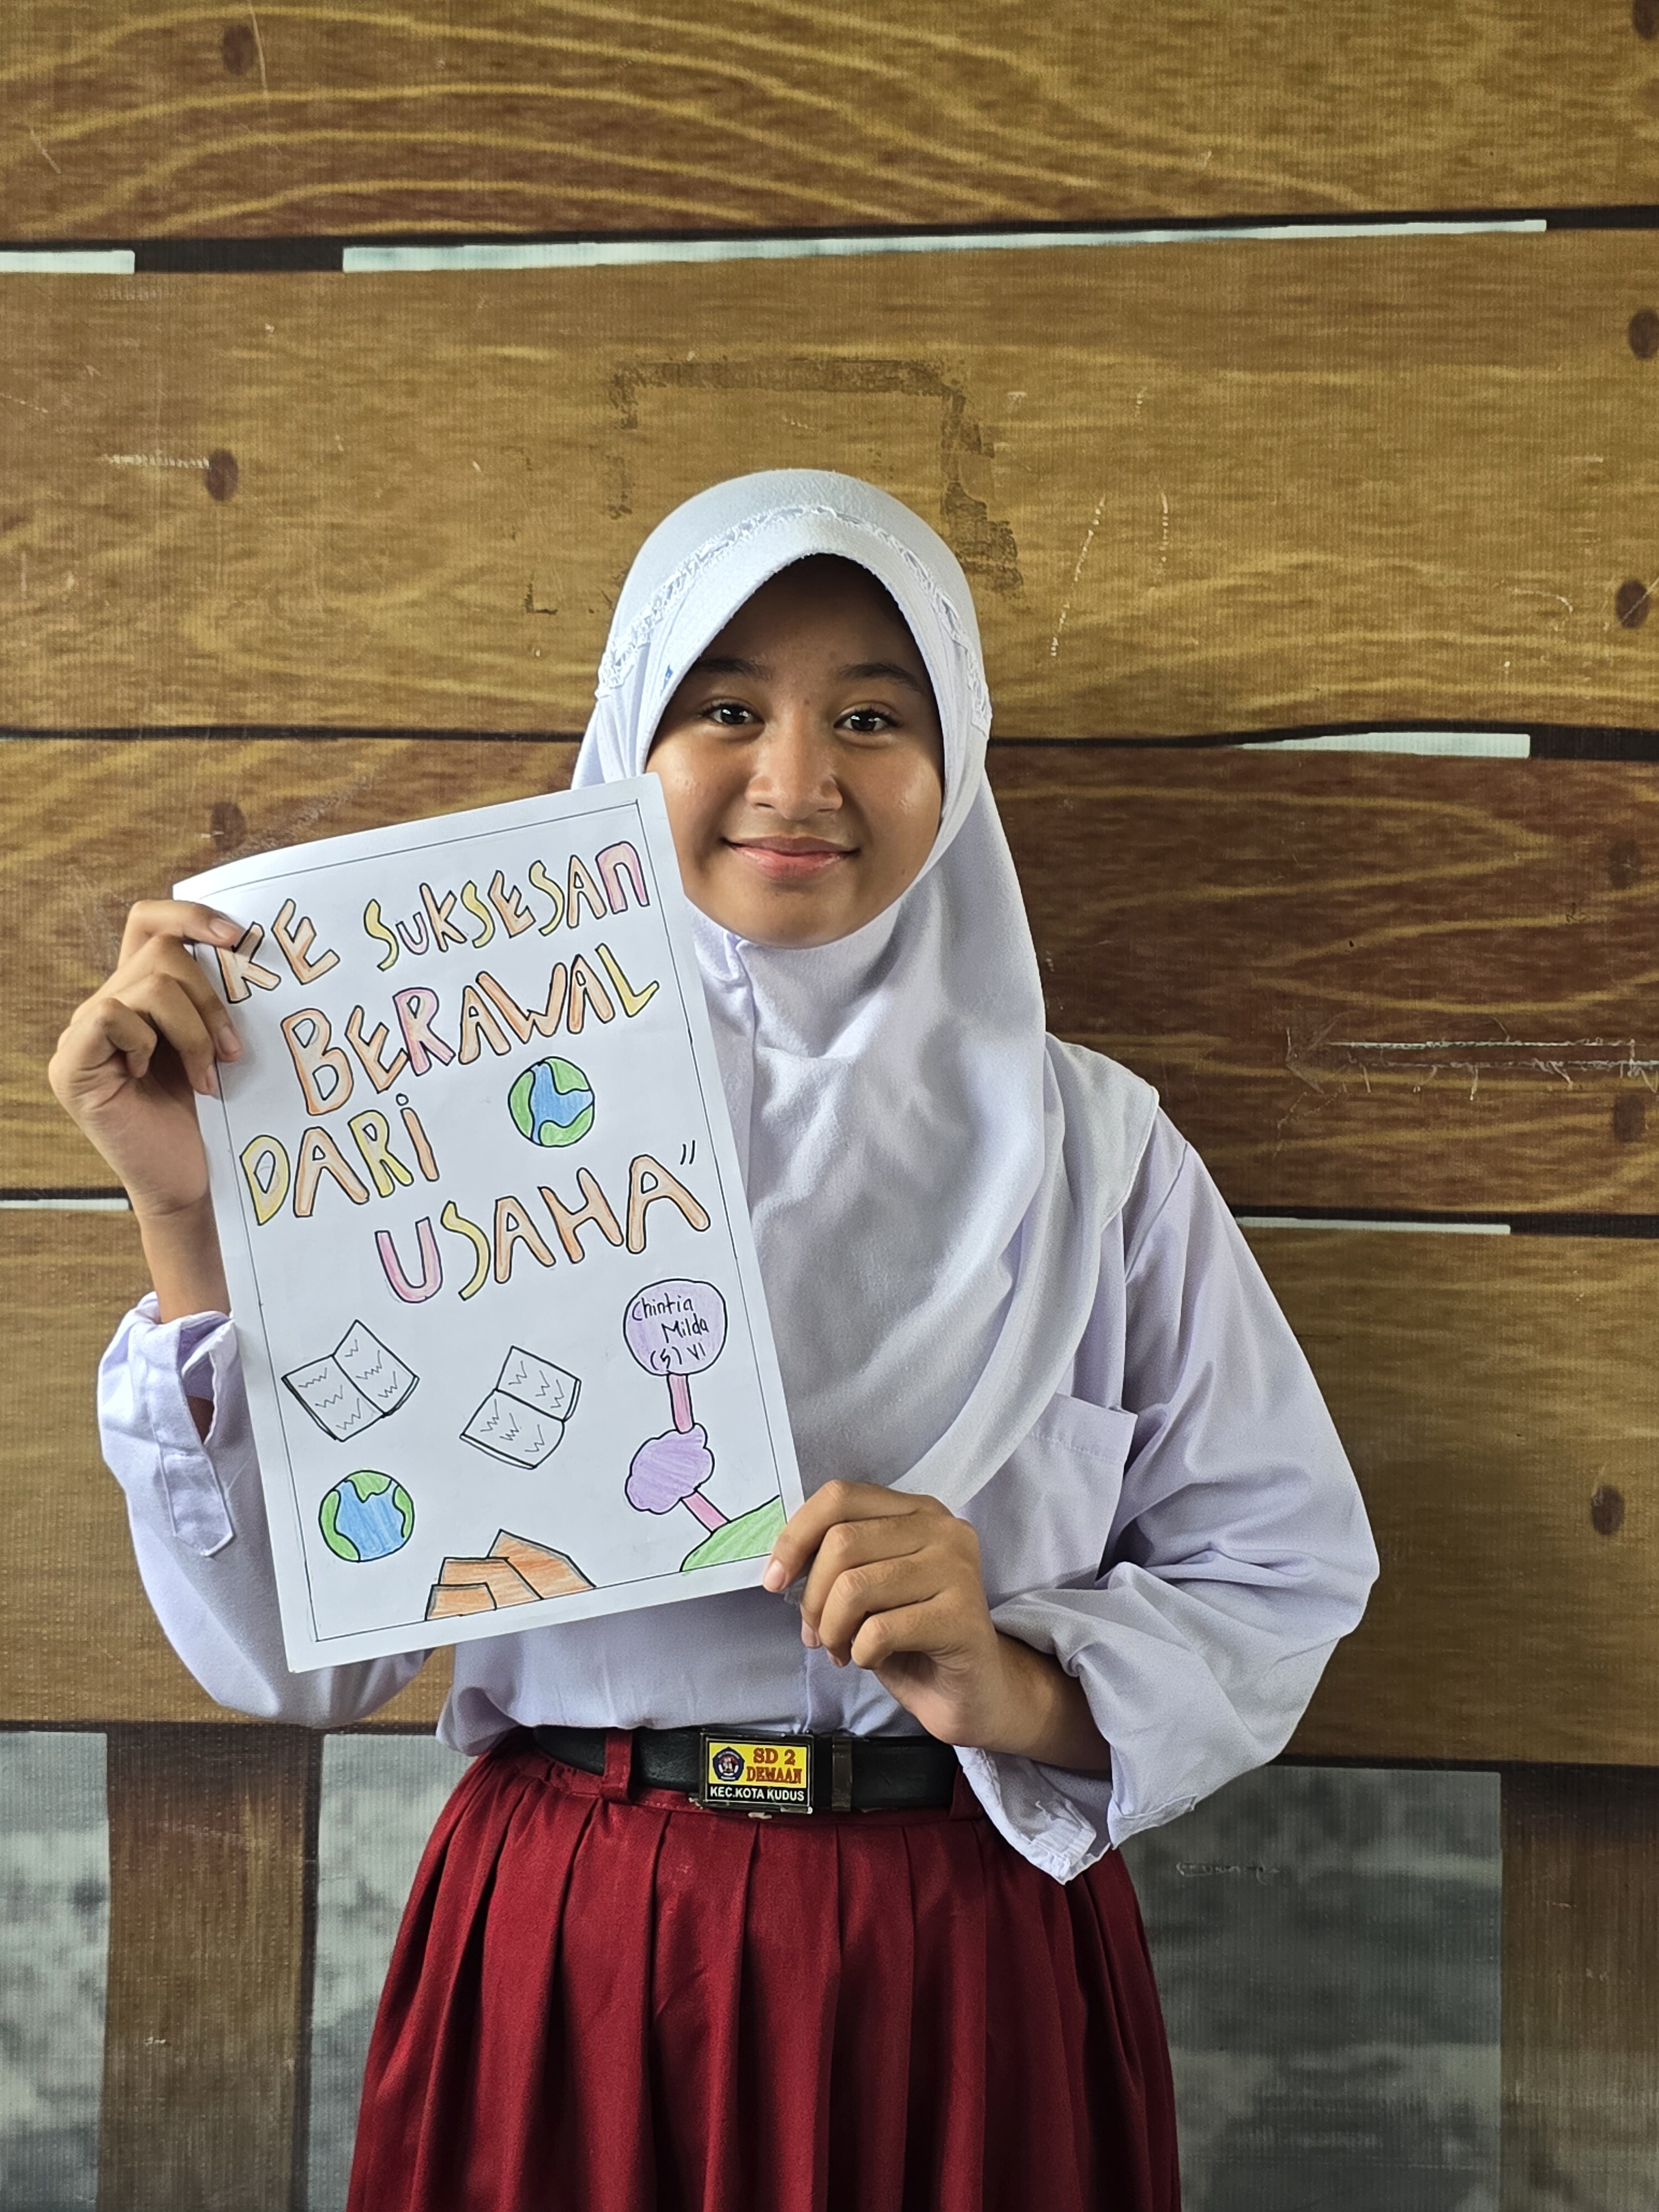 KE SUKSESAN
BERAWAL
DARi
USAHA"
Chintia
Milda
(5) VI
SD 2
DEMAAN
KEC.KOTA KUDUS